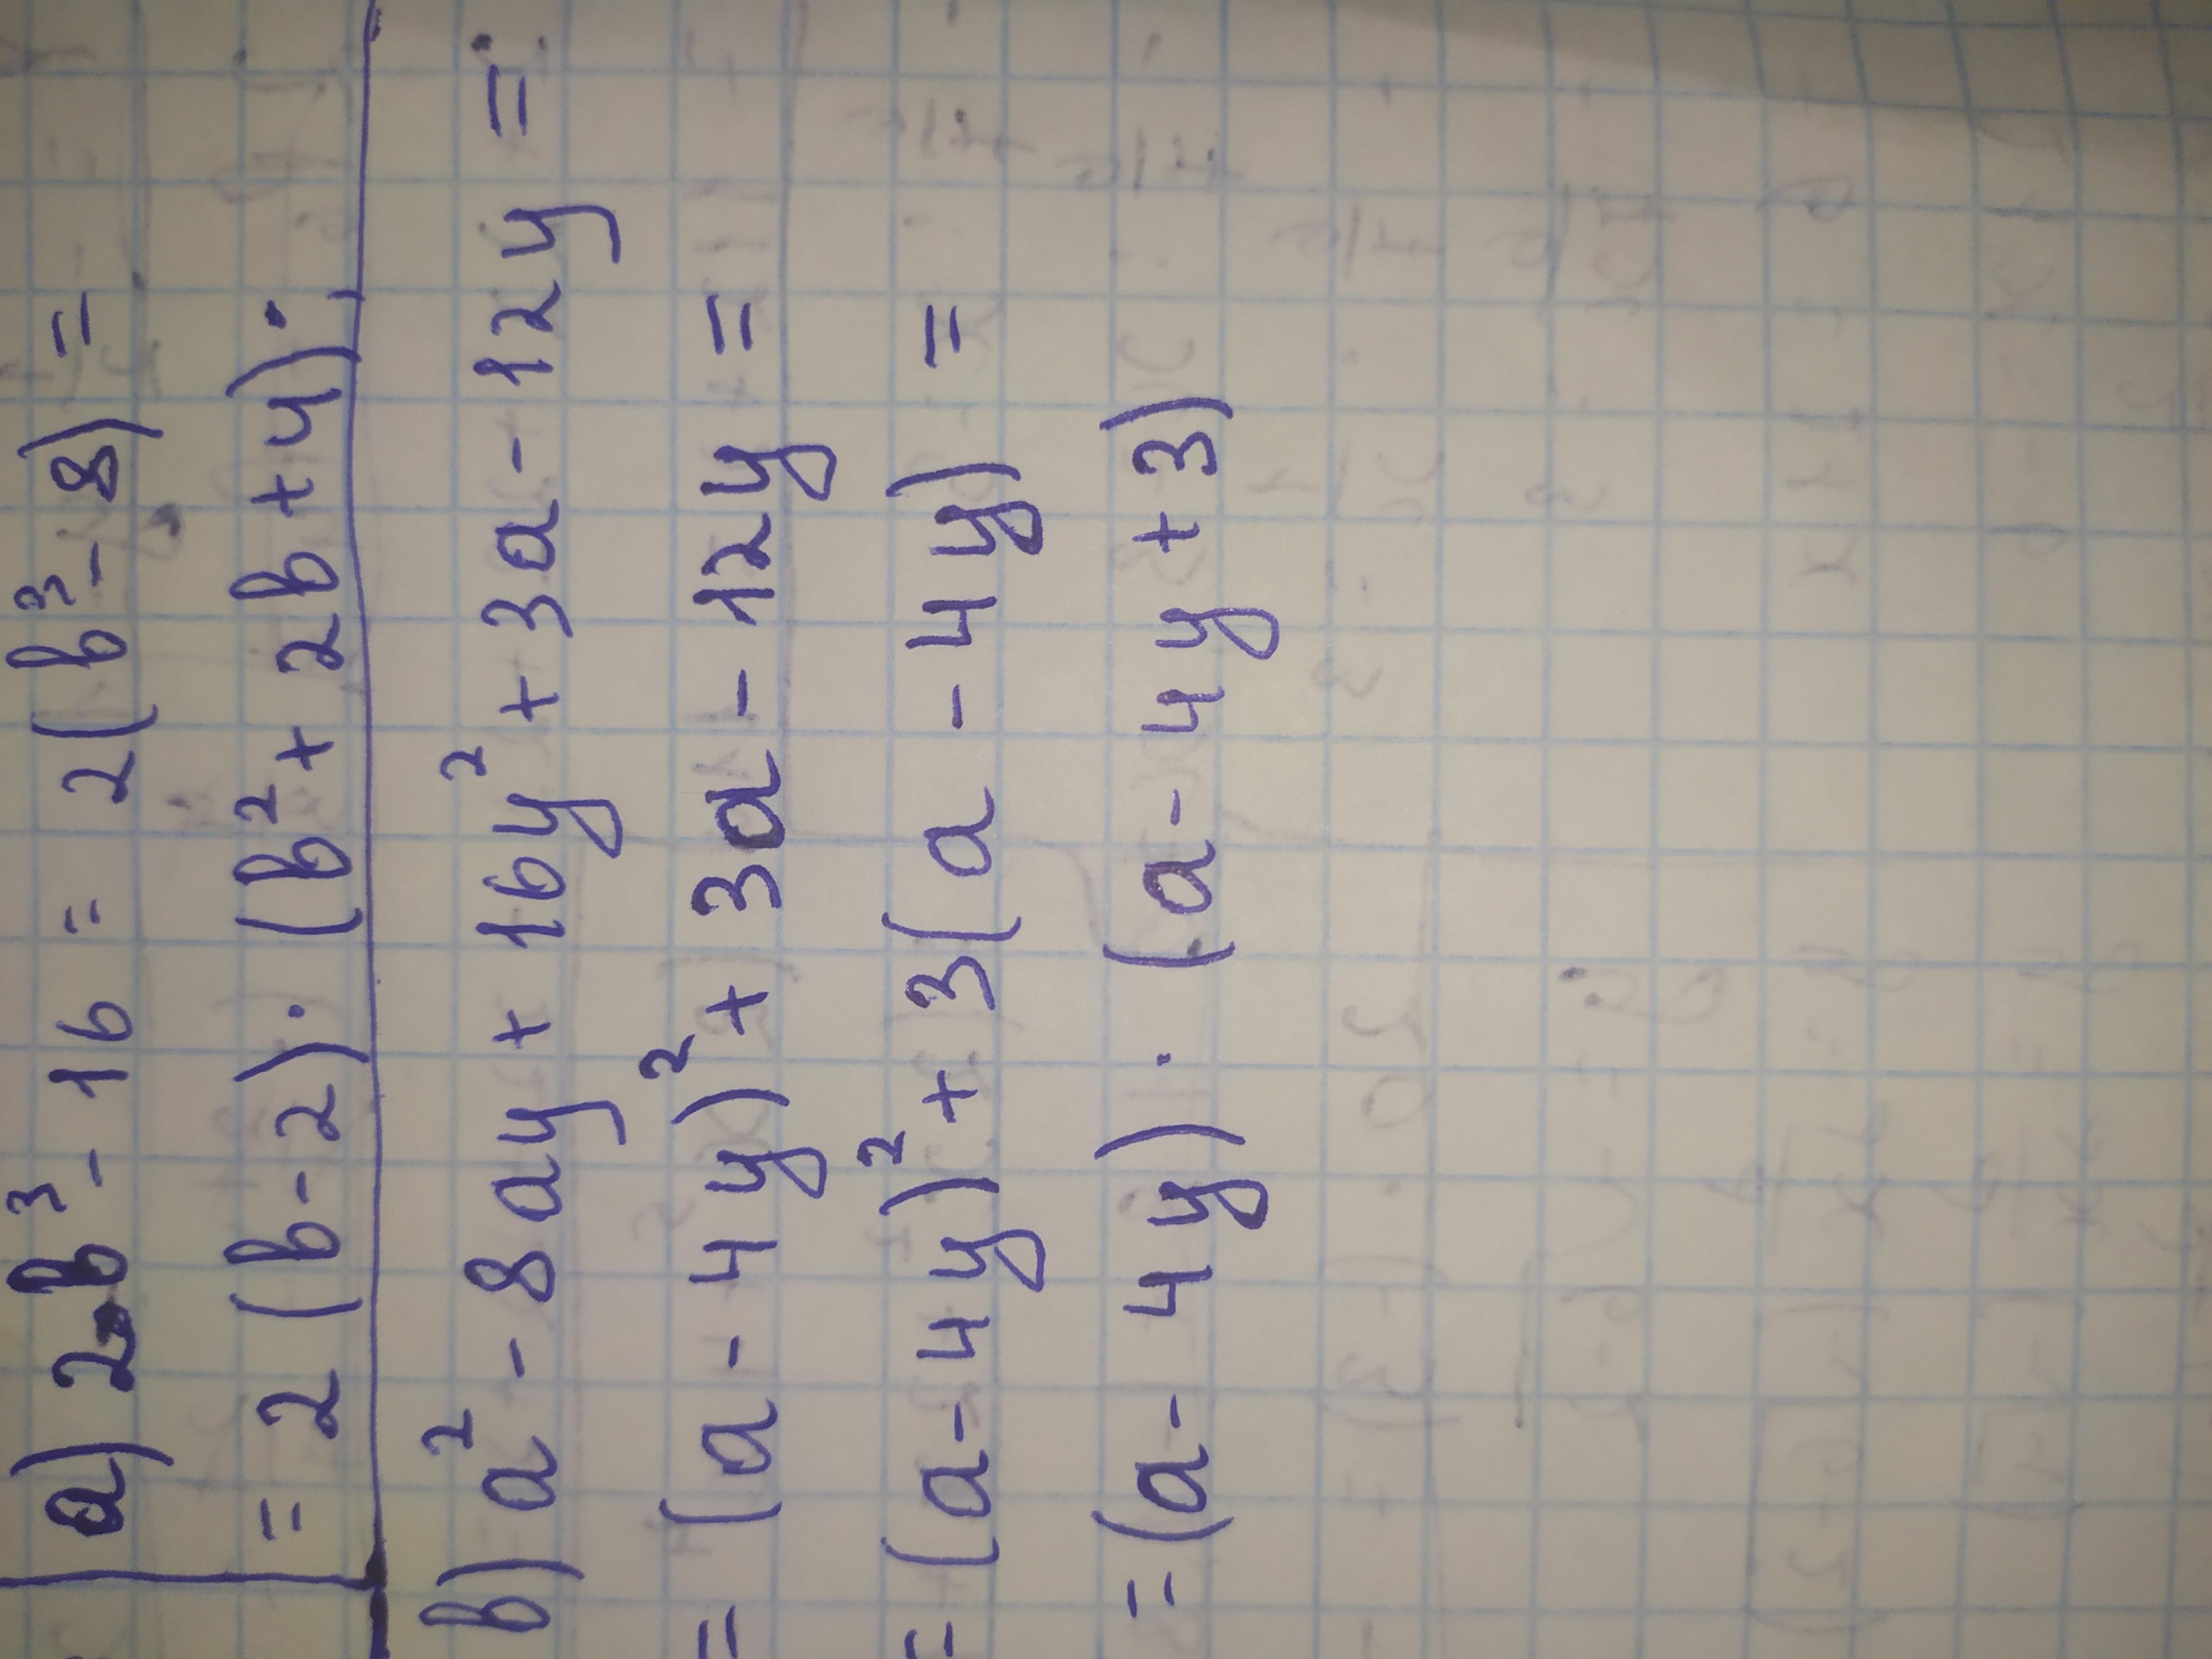 a) 2b³ - 16 = 2(b³ - 8) =
= 2(b - 2) · (b² + 2b + 4).
b) a² - 8ay + 16y² + 3a - 12y =
= (a - 4y)² + 3a - 12y =
= (a - 4y)² + 3(a - 4y) =
= (a - 4y) · (a - 4y + 3)